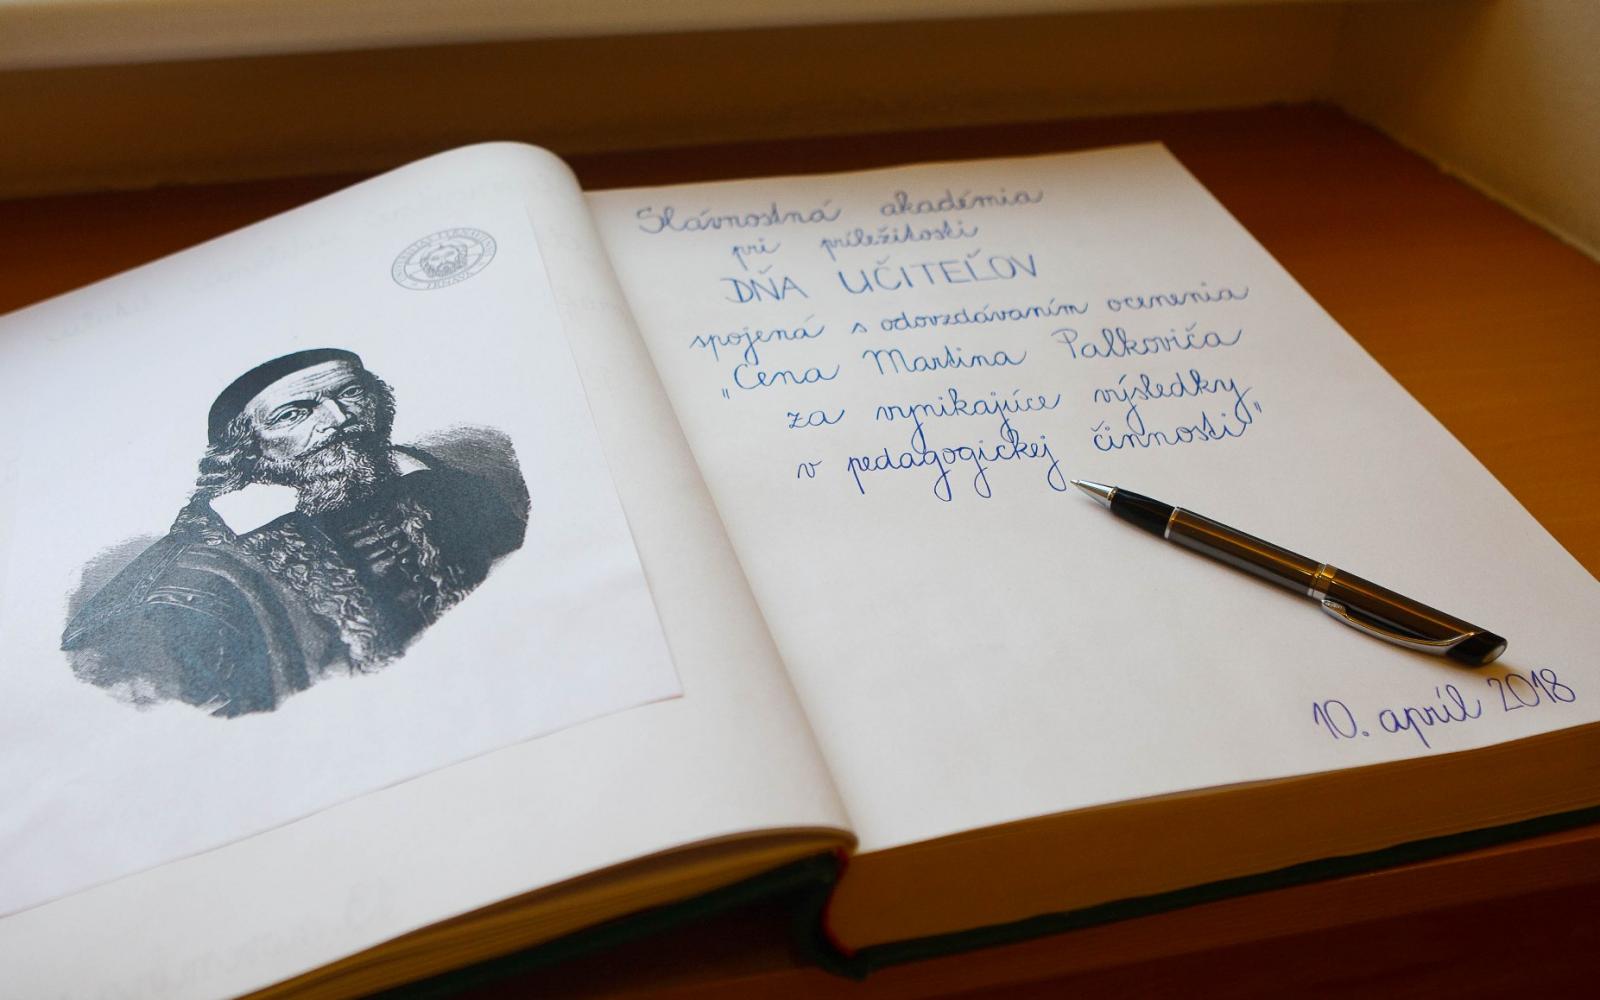 Slávnostná akadémia
pri príležitosti
DŇA UČITEĽOV
spojená s odovzdávaním ocenenia
„Cena Martina Palkoviča
za vynikajúce výsledky
v pedagogickej činnosti"
10. apríl 2018